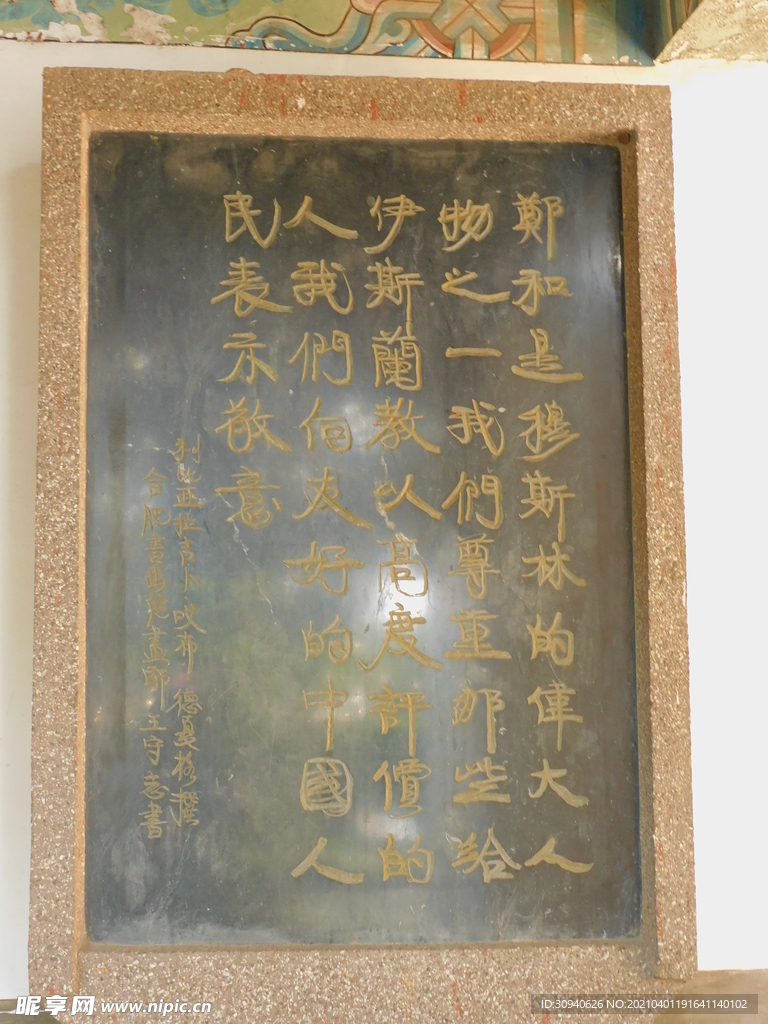 鄭和是穆斯林的偉大人
物之一我們尊重那些給
伊斯蘭教以高度評價的
人我們向友好的中國人
民表示敬意
利比亚 吉卜 德 撰
合肥書画院画師王守志書
昵享网 www.nipic.cn
ID:30940626 NO:20210401191641140102